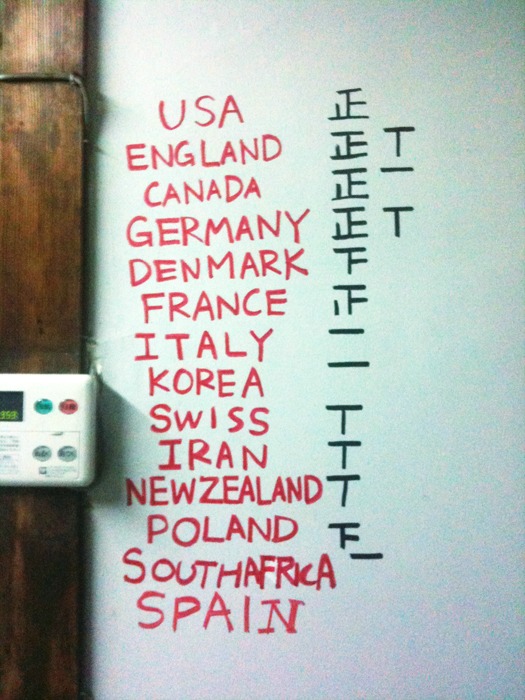 USA 正
ENGLAND 正 T
CANADA 正 一
GERMANY 正 T
DENMARK 下
FRANCE
ITALY 一
KOREA 一
SWISS T
IRAN T
NEWZEALAND T
POLAND 下
SOUTHAFRICA 一
SPAIN